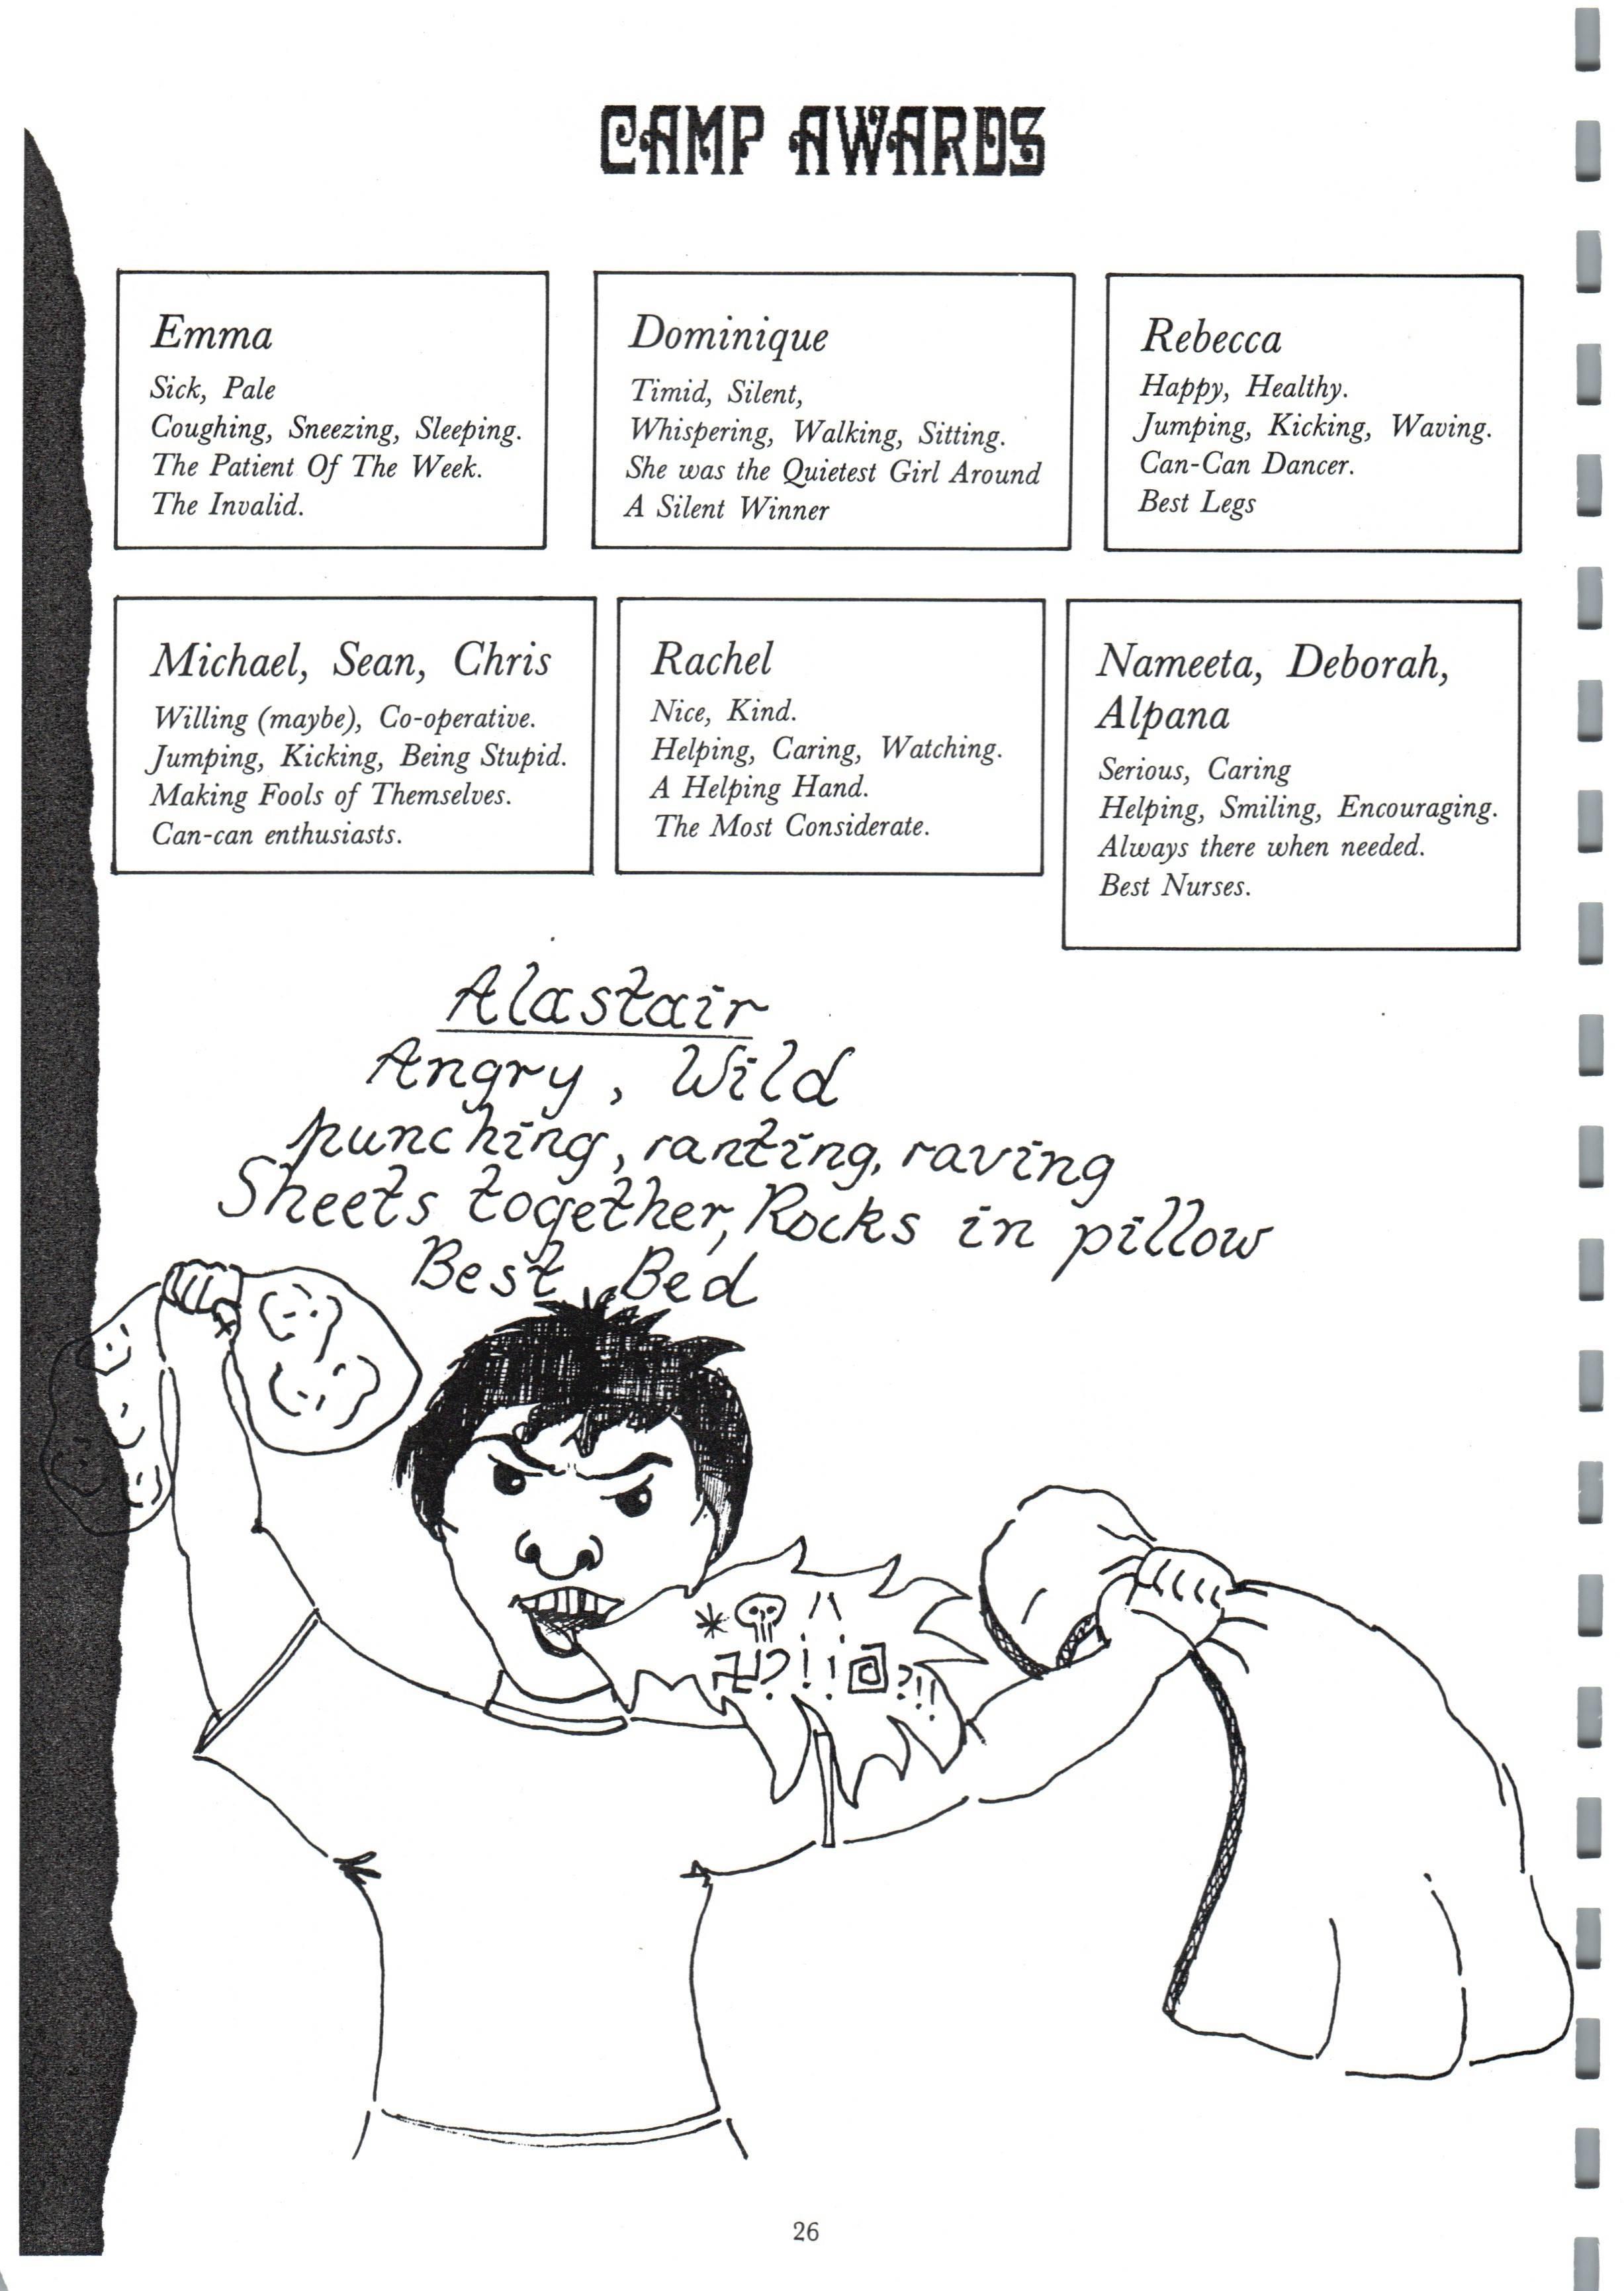 CAMP AWARDS
Emma
Sick, Pale
Coughing, Sneezing, Sleeping.
The Patient Of The Week.
The Invalid.
Dominique
Timid, Silent,
Whispering, Walking, Sitting.
She was the Quietest Girl Around
A Silent Winner
Rebecca
Happy, Healthy.
Jumping, Kicking, Waving.
Can-Can Dancer.
Best Legs
Michael, Sean, Chris
Willing (maybe), Co-operative.
Jumping, Kicking, Being Stupid.
Making Fools of Themselves.
Can-can enthusiasts.
Rachel
Nice, Kind.
Helping, Caring, Watching.
A Helping Hand.
The Most Considerate.
Nameeta, Deborah,
Alpana
Serious, Caring
Helping, Smiling, Encouraging.
Always there when needed.
Best Nurses.
Alastair
Angry, Wild
punching, ranting, raving
Sheets together, Rocks in pillow
Best Bed
26